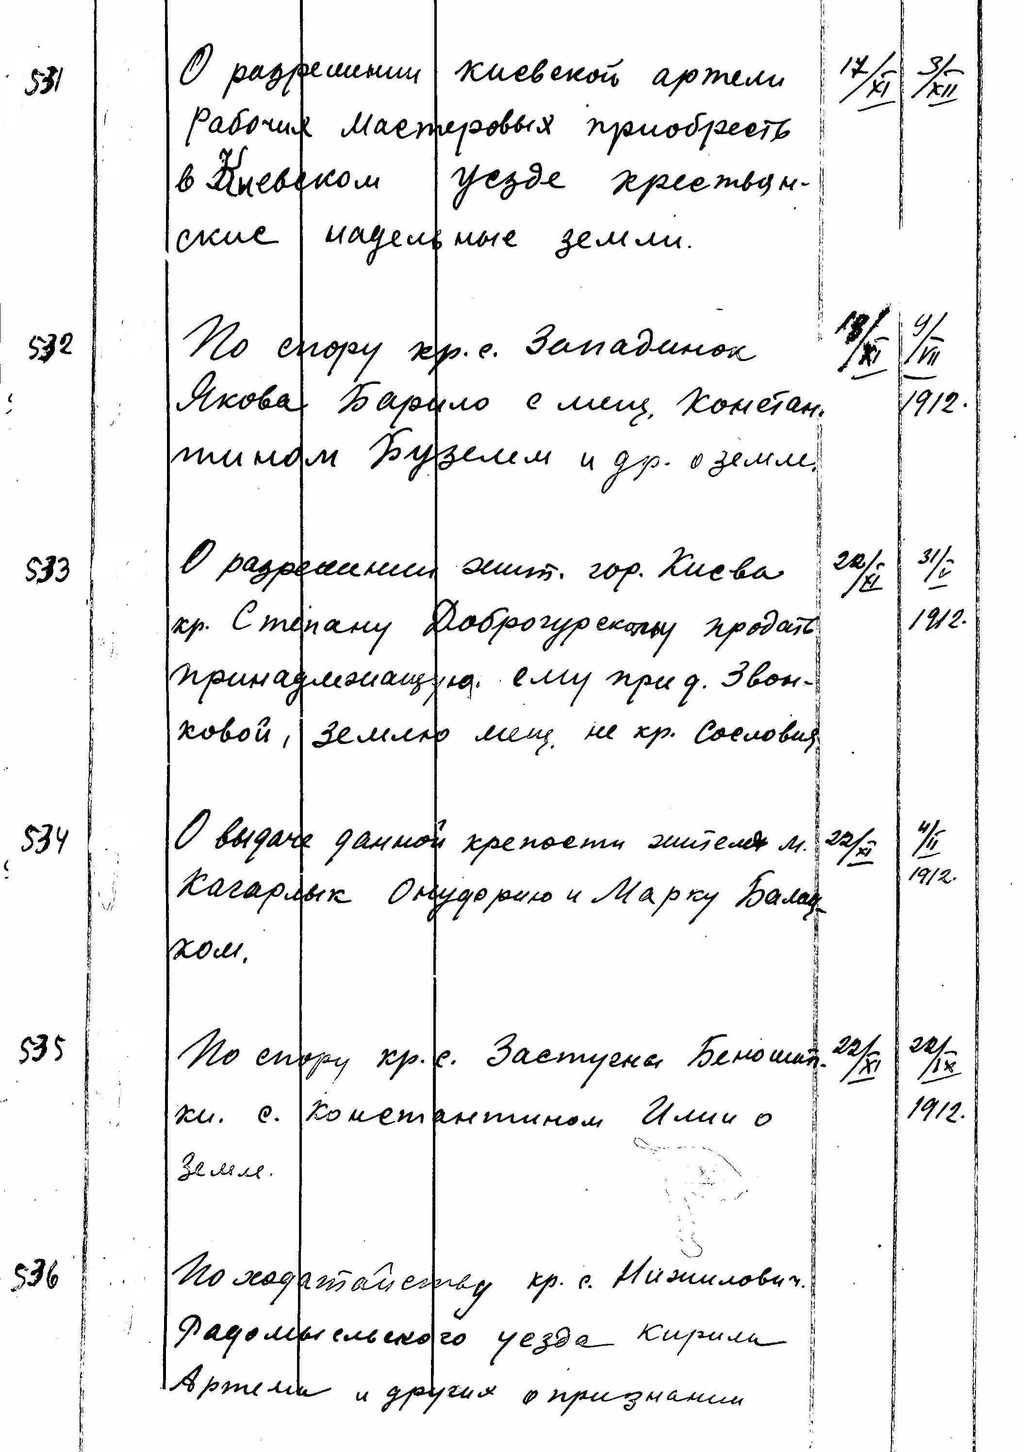 531 О разрешении киевской артели 17/XI 3/XII
рабочих мастеровых приобресть
в Киевском уезде крестьян-
ские надельные земли.
532 По спору кр. с. Западинок 18/XI 9/VII
Якова Барило с мещ. Констан- 1912.
тином Бузелем и др. о земле.
533 О разрешении жит. гор. Киева 22/XI 31/V
кр. Степану Доброгурскому продать 1912.
принадлежащую ему при д. Звон-
ковой, землю мещ. не кр. сословия
534 О выдаче данной крепости жителям м. 22/XI 4/II
Кагарлык Онуфрию и Марку Балац- 1912.
ком.
535 По спору кр. с. Застугна Беношап- 22/XI 22/IX
ки. с. Константином Илии о 1912.
земле.
536 По ходатайству кр. с. Нижилович.
Радомысльского уезда Кирила
Артема и других о признании